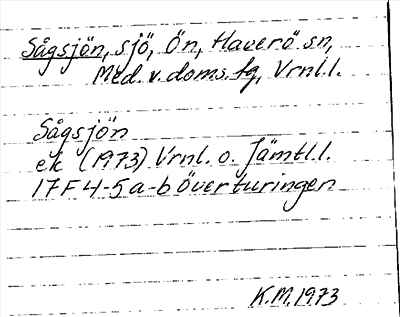 Sågsjön, sjö, Ön, Haverö sn,
Med. v. doms. fg, Vrnl. l.
Sågsjön
ek (1973) Vrnl. o. Jämtl. l.
17F 4-5 a-b Överturingen
K.M. 1973